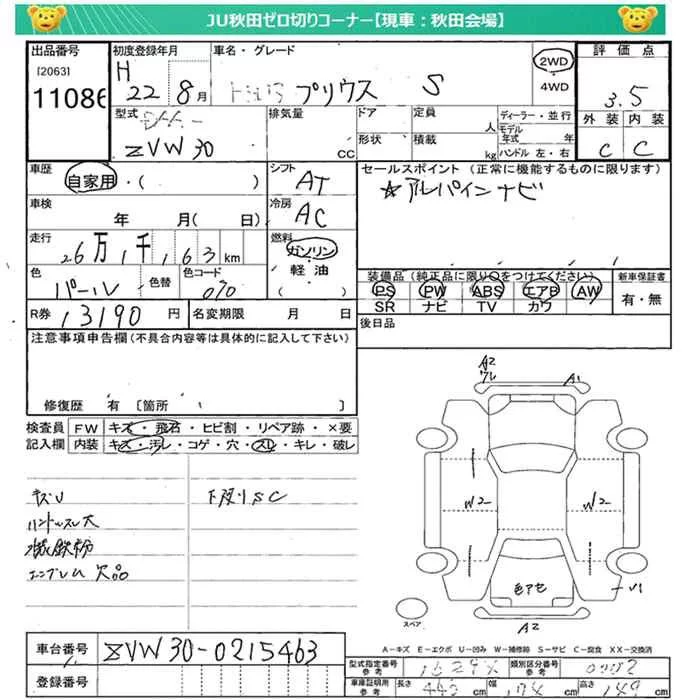 JU秋田ゼロ切りコーナー【現車：秋田会場】
出品番号 初度登録年月 車名・グレード 評価点
[2063] 11086 H 22 8月 トヨタ プリウス S 2WD 4WD 3.5
外装 内装
C C
型式 排気量 ドア 定員 人 ディーラー・並行
ZVW30 CC 形状 積載 kg モデル年式 年
ハンドル 左・右
車歴 シフト セールスポイント (正常に機能するものに限ります)
自家用・( ) AT ☆アルパインナビ
車検 冷房
年 月( 日) AC
走行 燃料
26万1千163km ガソリン
軽油
( )
色 色替 色コード 装備品(純正品に限り○をつけてください) 新車保証書
パール 070 PS PW ABS エアB AW 有・無
SR ナビ TV カワ
R券 13190円 名変期限 月 日 後日品
注意事項申告欄(不具合内容等は具体的に記入して下さい)
修復歴 有 [箇所 ]
検査員 FW キズ・飛石・ヒビ割・リペア跡・×要
記入欄 内装 キズ・汚レ・コゲ・穴・スレ・キレ・破レ
キズU 下廻りSC
ハンドルスレ大
鉄粉
エンブレム欠品
A2
ワレ
A1
W2
W2
色アセ
A2
スペア
A－キズ E－エクボ U－凹み W－補修跡 S－サビ C－腐食 XX－交換済
車台番号 ZVW30-0215463
登録番号
型式指定番号 参考 類別区分番号 参考
車庫証明用 参考 長さ cm 幅 cm 高さ 149 cm